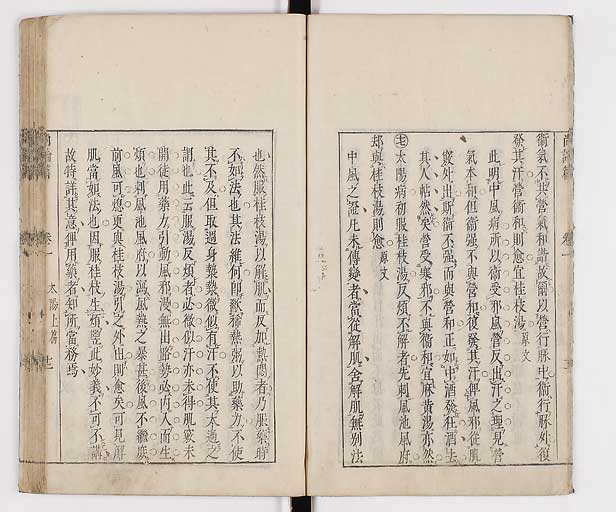 衛氣不共營氣和諧故爾以營行脉中衛行脉外復
發其汗營衛和則愈宜桂枝湯原文
此明中風病所以衛受邪風營反出汗之理見營
氣本和但衛强不與營和復發其汗俾風邪從肌
竅外出斯衛不强而與營和正如中酒發狂酒去
其人帖然矣營受寒邪不與衛和宜麻黃湯亦然
太陽病初服桂枝湯反煩不解者先刺風池風府
却與桂枝湯則愈原文
中風之證凡未傳變者當從解肌舍解肌無別法
也然服桂枝湯以解肌而反加熱悶者乃服藥時
不如法也其法維何即歠稀粥以助藥力不使
其不及但取遍身漐漐微似有汗不使其太過之
謂也此云服湯反煩者必微似汗亦未得肌竅未
開徒用藥力引動風邪漫無出路勢必內入而生
煩也刺風池風府以瀉風熱之暴甚後風不繼庶
前風可熄更與桂枝湯引之外出則愈矣可見解
肌當如法也因服桂枝生煩此妙義不可不講
故特詳其意俾用藥者知所當務焉
尚論篇 卷一 太陽上篇